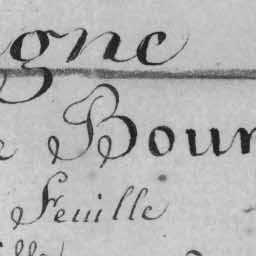 gne
e Bour
Feuille